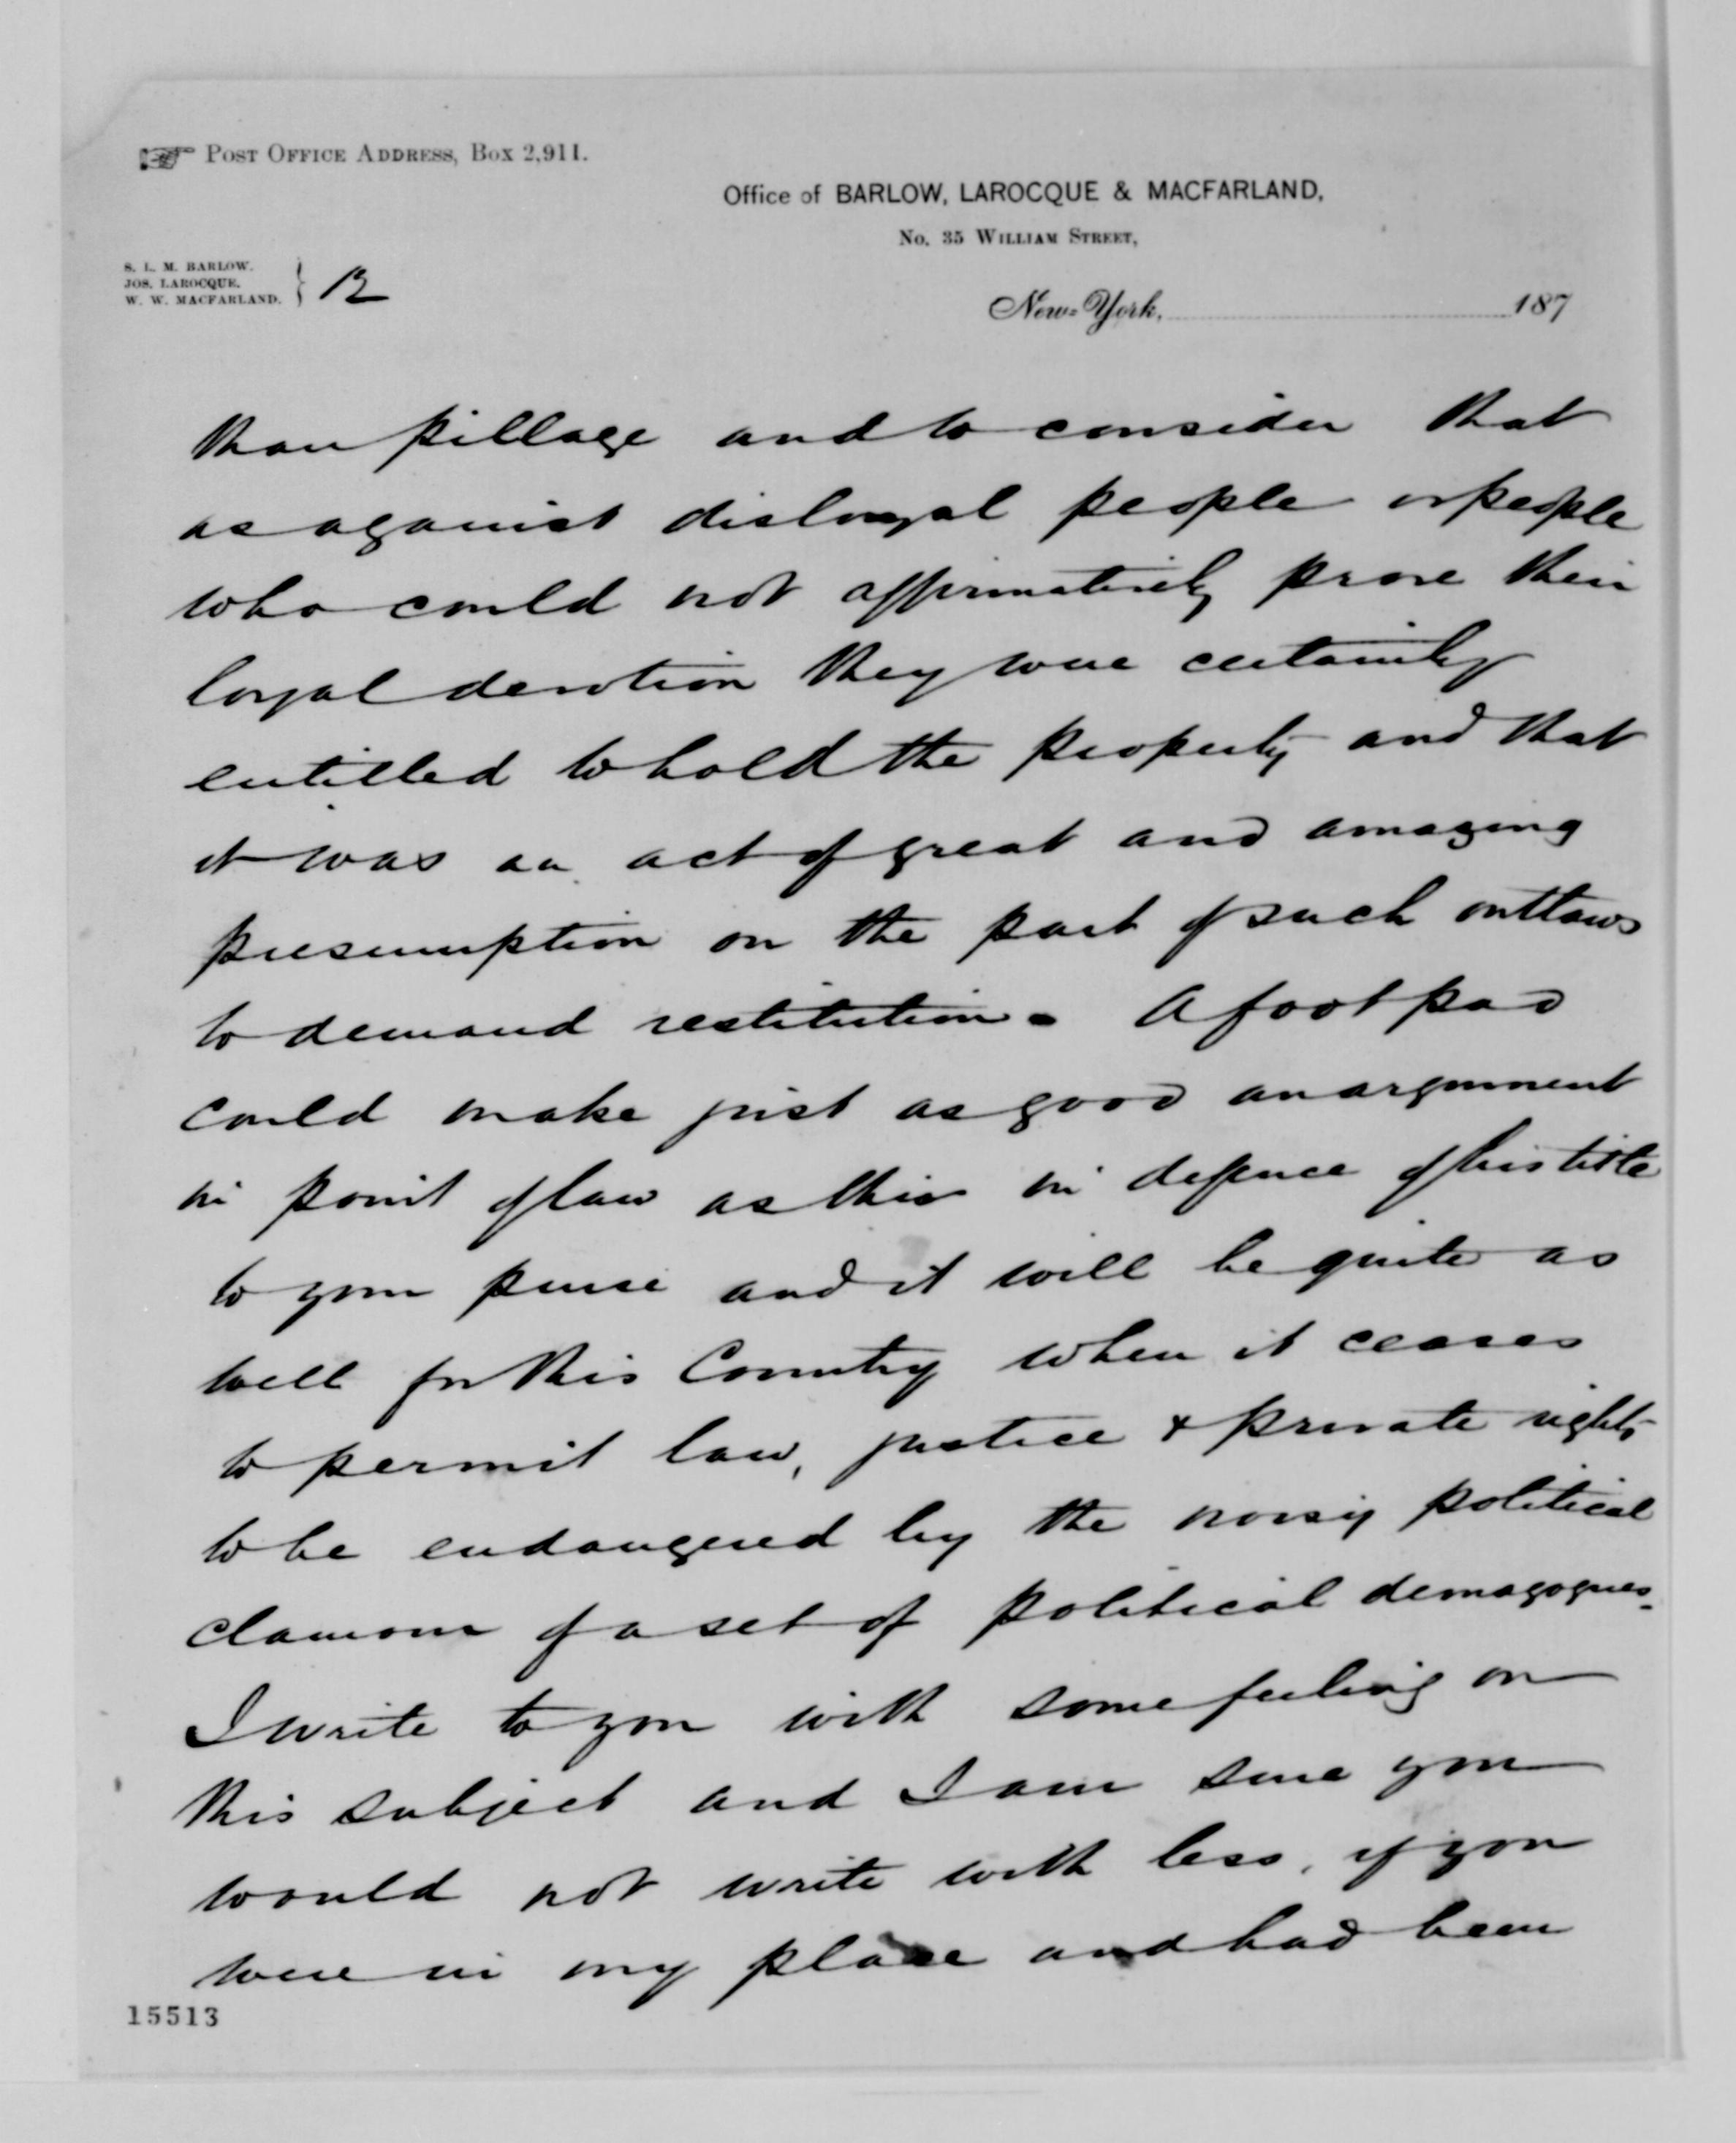 POST OFFICE ADDRESS, BOX 2,911.
Office of BARLOW, LAROCQUE & MACFARLAND,
No. 35 WILLIAM STREET,
S. L. M. BARLOW.
JOS. LAROCQUE.
W. W. MACFARLAND.
12
New-York, 187
than pillage and to consider that
as against disloyal people or people
who could not affirmatively prove their
loyal devotion they were certainly
entitled to hold the property and that
it was an act of great and amazing
presumption on the part of such outlaws
to demand restitution. A foot pad
could make just as good an argument
in point of law as this in defence of his title
to your purse and it will be quite as
well for this Country when it ceases
to permit law, justice & private rights
to be endangered by the noisy political
clamour of a set of political demagogues.
I write to you with some feeling on
this subject and I am sure you
would not write with less, if you
were in my place and had been
15513